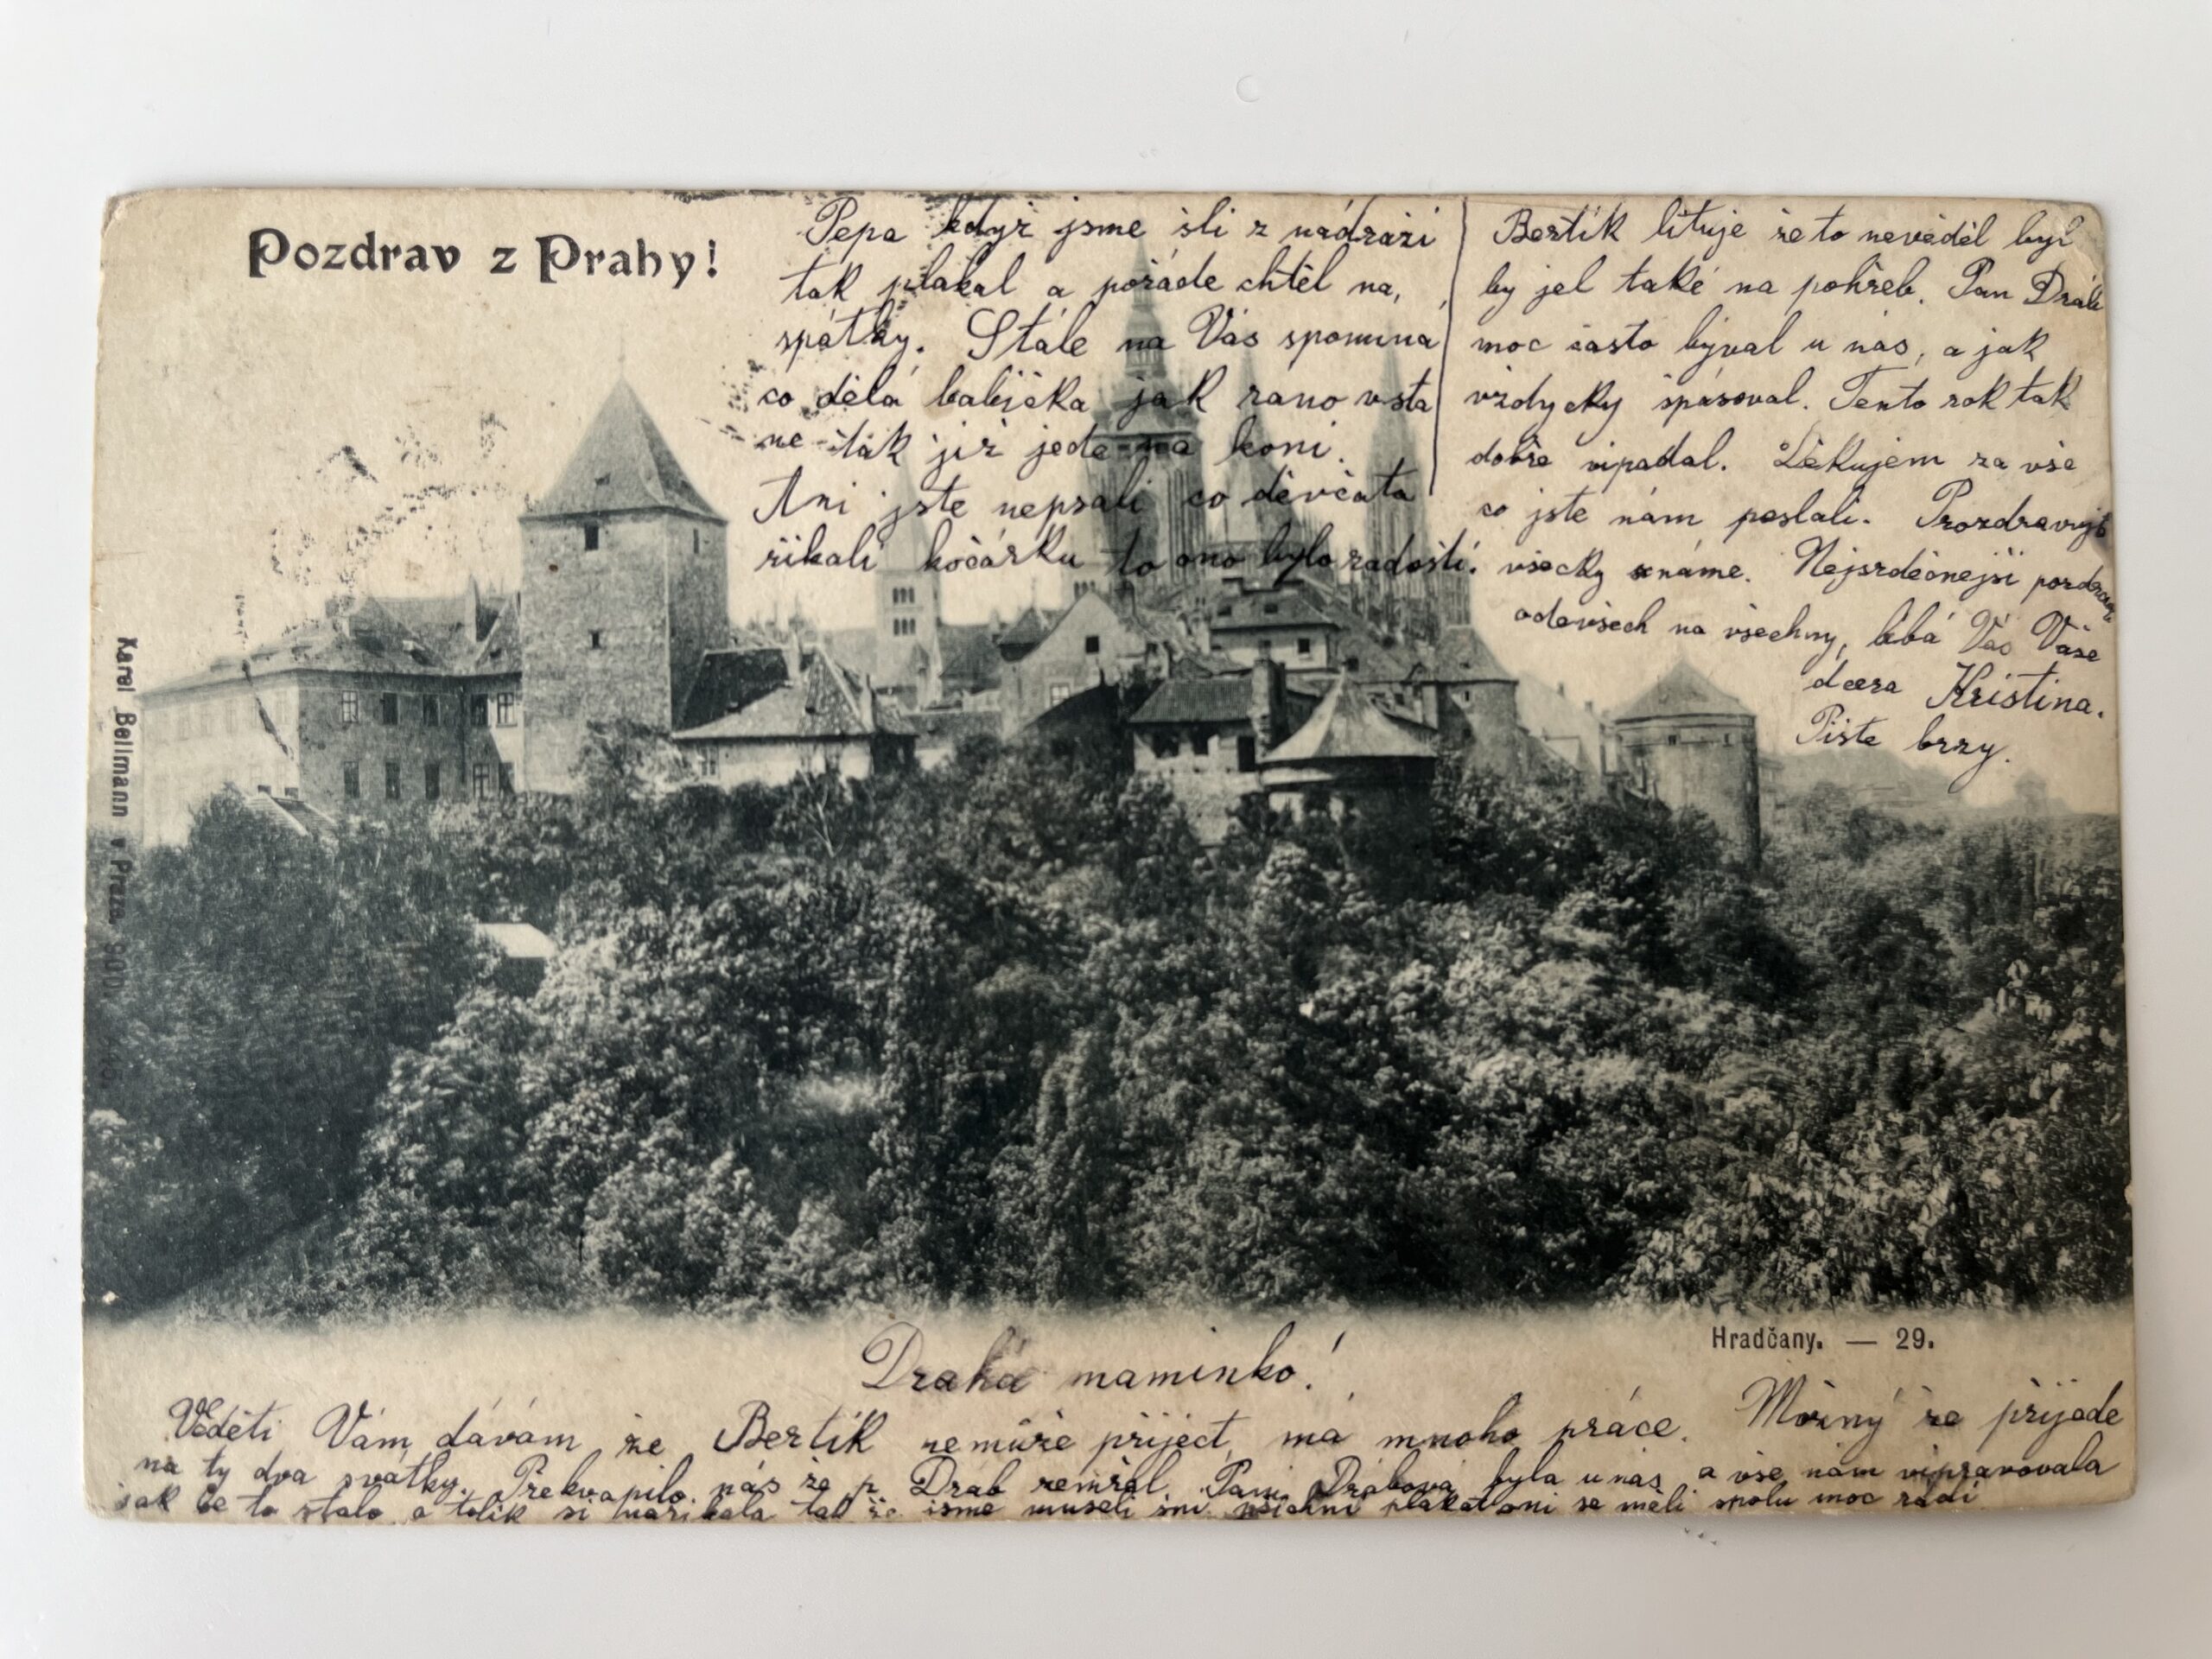 Pozdrav z Prahy!
Drahá maminko!
Věděti Vám dávám že Bertík nemůže přiject, má mnoho práce. Možný že přijede
na ty dva svátky. Překvapilo nás že p. Drab zemřel. Paní Drábová byla u nás a vše nám vipravovala
jak se to stalo a tolik si naříkala tak že jsme museli všichni plakat oni se měli spolu moc rádi
Pepa když jsme šli z nádraží
tak plakal a pořáde chtěl na,
spátky. Stále na Vás spomíná
co dělá babička jak rano vsta
ne tak již jede na koni.
Ani jste nepsali co děvčata
řikali kočárku to ono bylo radosti.
Bertík lituje že to nevěděl byl
by jel také na pohřeb. Pan Dráb
moc často býval u nás, a jak
vždycky špásoval. Tento rok tak
dobře vipadal. Děkujem za vše
co jste nám poslali. Prozdravujt
všecky známe. Nejsrdečnejší pozdrav
odevšech na všechny, líbá Vás Vaše
dcera Kristina.
Pište brzy.
Hradčany. — 29.
Karel Bellmann v Praze